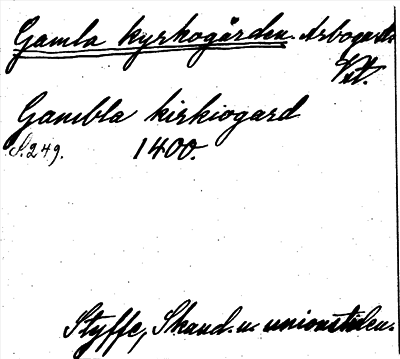 Gamla kyrkogården. Arboga ls
Vstl.
Gambla kirkiogard
S. 249. 1400.
Styffe, Skand. u. unionstiden.